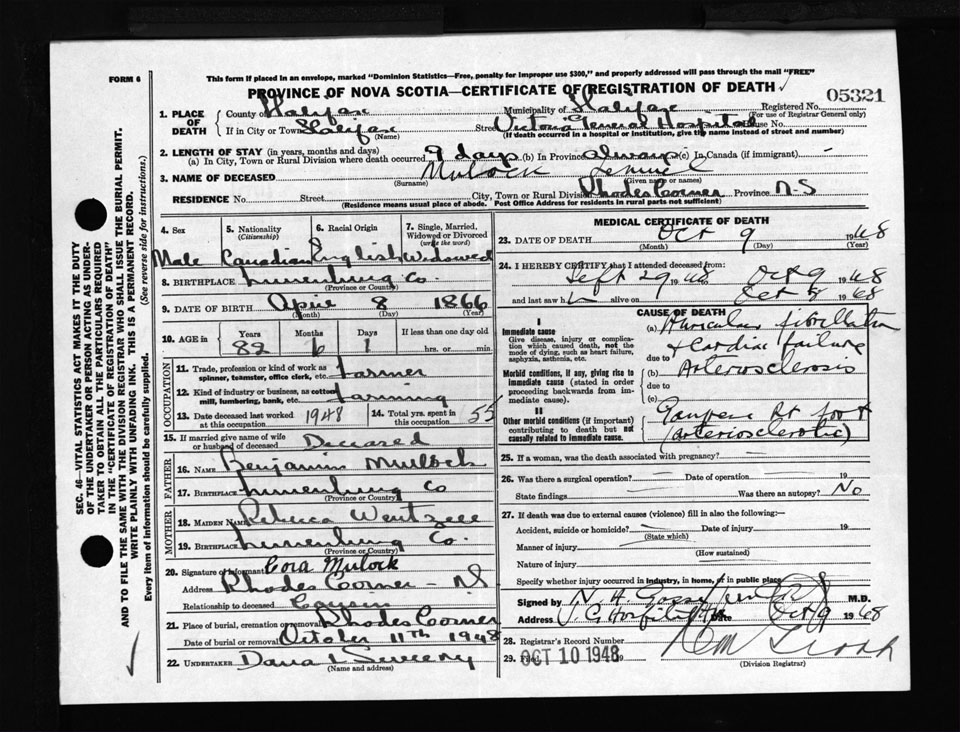 FORM 6
This form if placed in an envelope, marked "Dominion Statistics—Free, penalty for improper use $300," and properly addressed will pass through the mail "FREE"
PROVINCE OF NOVA SCOTIA—CERTIFICATE OF REGISTRATION OF DEATH
05321
1. PLACE OF DEATH County of Halifax Municipality of Halifax Registered No.
(For use of Registrar General only)
If in City or Town Halifax Street Victoria General Hospital House No.
(If death occurred in a hospital or institution, give the name instead of street and number)
2. LENGTH OF STAY (in years, months and days)
(a) In City, Town or Rural Division where death occurred 9 days (b) In Province always (c) In Canada (if immigrant) -
3. NAME OF DECEASED Mulock Lemuel
(Surname) (Given name or names)
RESIDENCE No. Street City, Town or Rural Division Rhodes Corner Province N-S
(Residence means usual place of abode. Post Office Address for residents in rural parts not sufficient)
4. Sex
Male
5. Nationality (Citizenship)
Canadian
6. Racial Origin
English
7. Single, Married, Widowed or Divorced (write the word)
Widowed
8. BIRTHPLACE Lunenburg Co.
(Province or Country)
9. DATE OF BIRTH April 8 1866
(Month) (Day) (Year)
10. AGE in Years Months Days If less than one day old
82 6 1 hrs. or min.
OCCUPATION
11. Trade, profession or kind of work as spinner, teamster, office clerk, etc. Farmer
12. Kind of industry or business, as cotton mill, lumbering, bank, etc. Farming
13. Date deceased last worked at this occupation 1948
14. Total yrs. spent in this occupation 55
15. If married give name of wife or husband of deceased Deceased
FATHER
16. NAME Benjamin Mulock
17. BIRTHPLACE Lunenburg Co
(Province or Country)
MOTHER
18. MAIDEN NAME Rebecca Wentzell
19. BIRTHPLACE Lunenburg Co.
(Province or Country)
20. Signature of informant Cora Mulock
Address Rhodes Corner - NS
Relationship to deceased Cousin
21. Place of burial, cremation or removal Rhodes Corner
Date of burial or removal October 11th 1948
22. UNDERTAKER Dana L Sweeny
(Name and address)
MEDICAL CERTIFICATE OF DEATH
23. DATE OF DEATH Oct 9 1948
(Month) (Day) (Year)
24. I HEREBY CERTIFY that I attended deceased from:
Sept 29 1948 Oct 9 1948
and last saw h alive on Oct 8 1948
CAUSE OF DEATH
I
Immediate cause
Give disease, injury or complication which caused death, not the mode of dying, such as heart failure, asphyxia, asthenia, etc.
(a) Auricular fibrillation & Cardiac failure
due to
Morbid conditions, if any, giving rise to immediate cause (stated in order proceeding backwards from immediate cause).
(b) Arteriosclerosis
due to
(c)
II
Other morbid conditions (if important) contributing to death but not causally related to immediate cause.
Gangrene Rt foot
(arteriosclerotic)
25. If a woman, was the death associated with pregnancy?
26. Was there a surgical operation? Date of operation 19
State findings Was there an autopsy? No
27. If death was due to external causes (violence) fill in also the following:—
Accident, suicide or homicide? Date of injury 19
(State which)
Manner of injury
(How sustained)
Nature of injury
Specify whether injury occurred in industry, in home, or in public place
Signed by N. H. Gosse M.D.
Address V. G. Hospital Hfx Date Oct 9 1948
28. Registrar's Record Number
29. OCT 10 1948 19
(Division Registrar)
SEC. 46—VITAL STATISTICS ACT MAKES IT THE DUTY
OF THE UNDERTAKER OR PERSON ACTING AS UNDER-
TAKER TO OBTAIN ALL THE PARTICULARS REQUIRED
IN THE "CERTIFICATE OF REGISTRATION OF DEATH"
AND TO FILE THE SAME WITH THE DIVISION REGISTRAR WHO SHALL ISSUE THE BURIAL PERMIT.
WRITE PLAINLY WITH UNFADING INK. THIS IS A PERMANENT RECORD.
Every item of information should be carefully supplied. (See reverse side for instructions.)